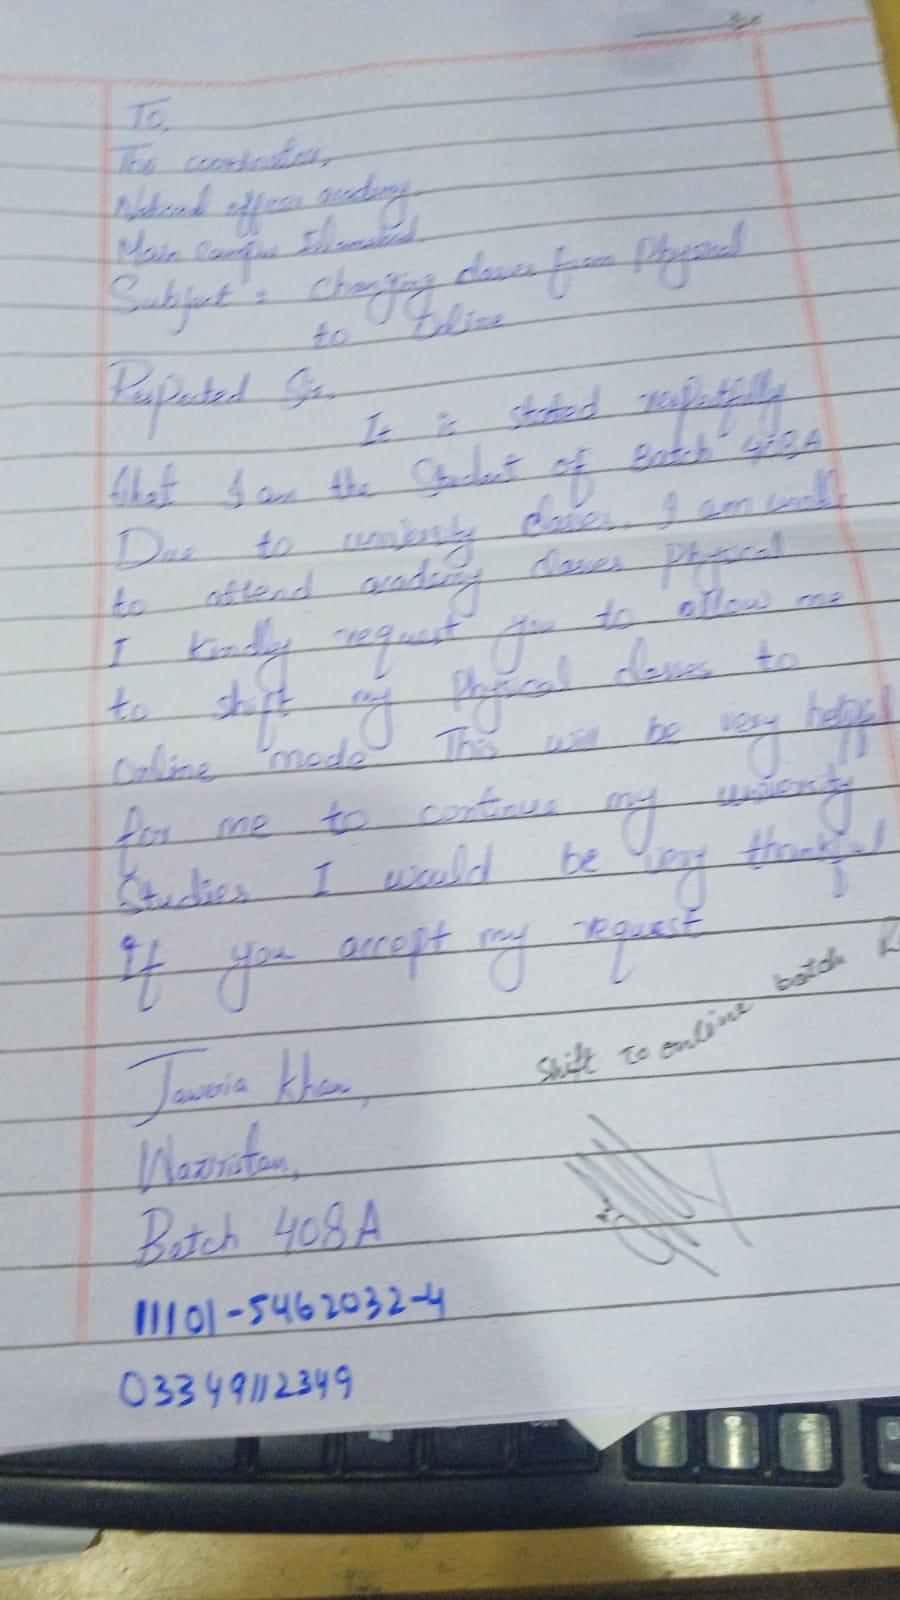 To,
The coordinator,
National officer academy
Main campus Islamabad.
Subject : Changing classes from Physical
to Online
Respected Sir.
It is stated respectfully
that I am the Student of Batch 408A
Due to university classes. I am unable
to attend academy classes physical
I kindly request you to allow me
to shift my Physical classes to
online mode This will be very helpful
for me to continue my university
Studies I would be very thankful
If you accept my request
Shift To online batch
Jaweria Khan,
Waziristan,
Batch 408A
11101-5462032-4
03349112349